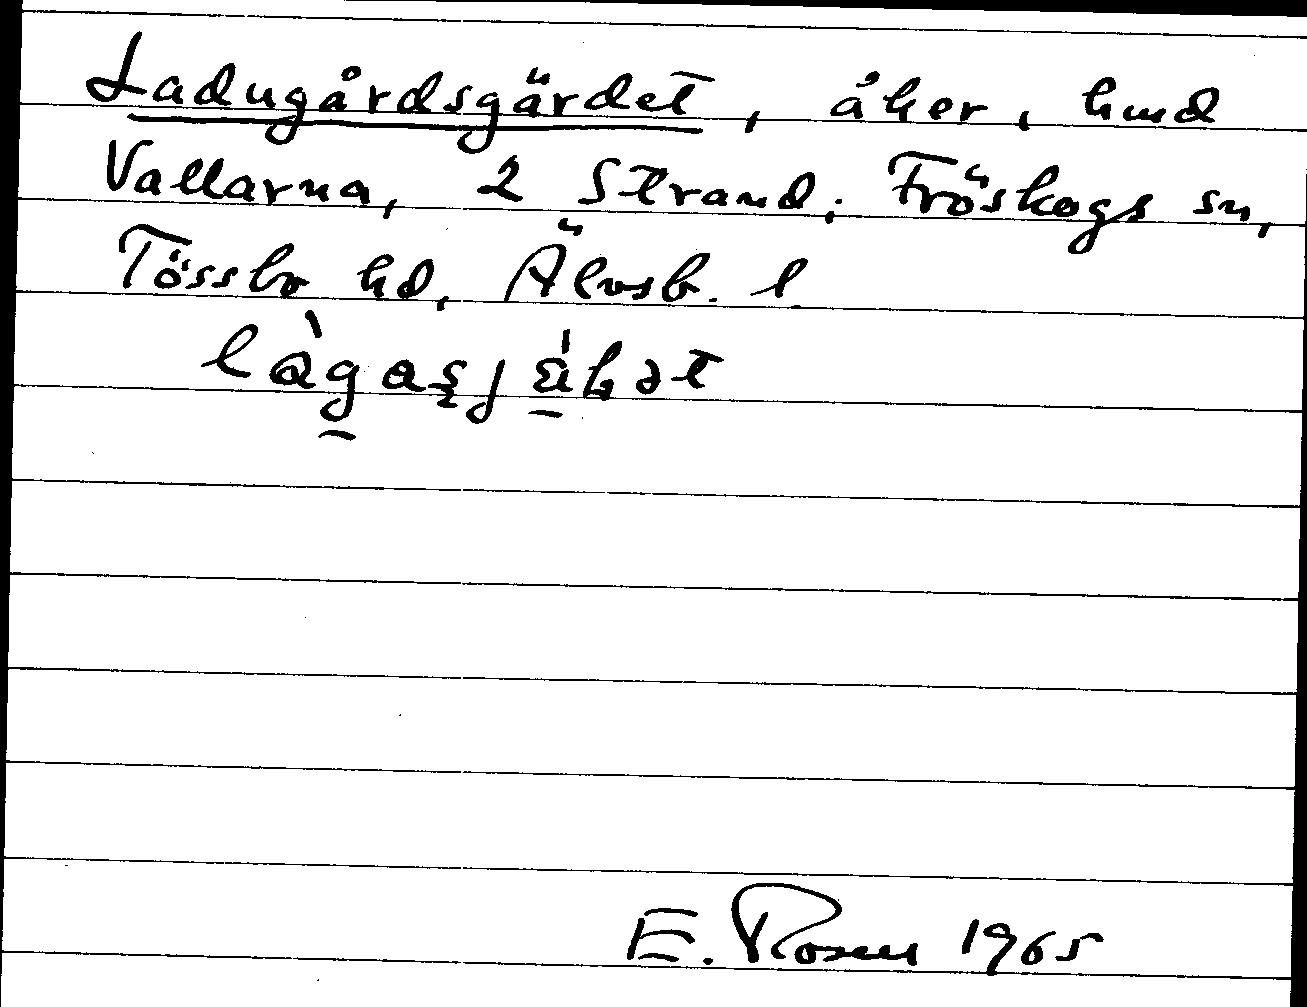 Ladugårdsgärdet, åker, hmd
Vallarna, 2 Strand, Fröskogs sn,
Tössbo hd, Älvsb. l.
E. Rosen 1965